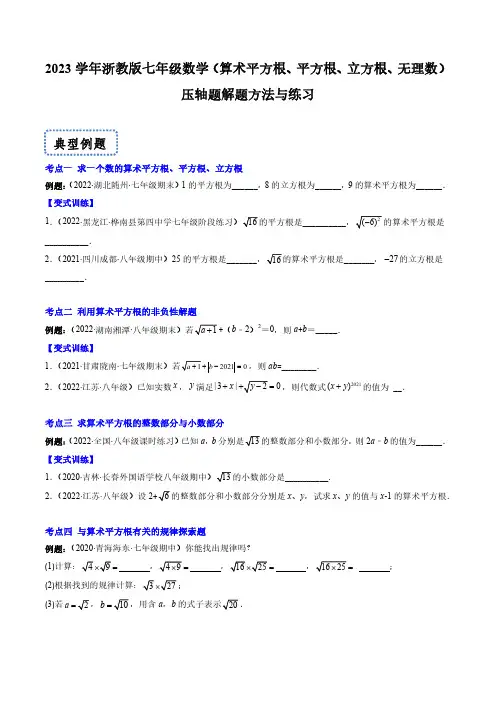 2023 学年浙教版七年级数学（算术平方根、平方根、立方根、无理数）
压轴题解题方法与练习
典型例题
考点一 求一个数的算术平方根、平方根、立方根
例题：（2022·湖北随州·七年级期末）1 的平方根为______，8 的立方根为______，9 的算术平方根为______．
【变式训练】
1．（2022·黑龙江·桦南县第四中学七年级阶段练习）√16的平方根是__________，√(−6)²的算术平方根是
__________．
2．（2021·四川成都·八年级期中）25 的平方根是_______，√16的算术平方根是_______，−27的立方根是
_________．
考点二 利用算术平方根的非负性解题
例题：（2022·湖南湘潭·八年级期末）若√a+1+（b﹣2）²＝0，则 a+b＝_____．
【变式训练】
1．（2021·甘肃陇南·七年级期末）若√a+1+|b−2021|=0，则 ab=________．
2．（2022·江苏·八年级）已知实数 x，y 满足|3+x|+√y−2=0，则代数式(x+y)²⁰²¹的值为 __．
考点三 求算术平方根的整数部分与小数部分
例题：（2022·全国·八年级课时练习）已知 a，b 分别是√13的整数部分和小数部分，则 2a﹣b 的值为______．
【变式训练】
1．（2020·吉林·长春外国语学校八年级期中）√13的小数部分是__________．
2．（2022·江苏·八年级）设 2+√6的整数部分和小数部分分别是 x、y，试求 x、y 的值与 x-1 的算术平方根．
考点四 与算术平方根有关的规律探索题
例题：（2020·青海海东·七年级期中）你能找出规律吗？
(1)计算：√4×√9=_______，√4×9=_______，√16×√25=_______，√16×25=_______；
(2)根据找到的规律计算：√3×√27；
(3)若 a=√2，b=√10，用含 a，b 的式子表示√20．